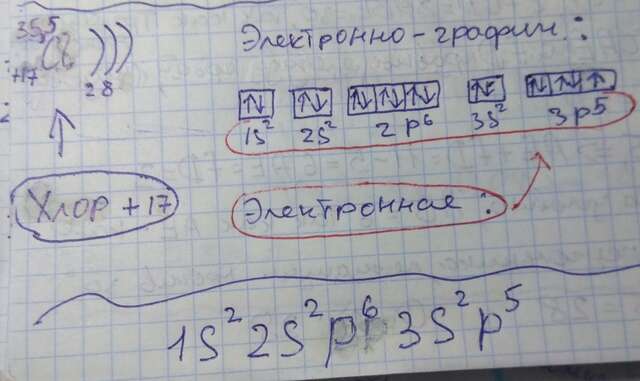 35,5
Cl )))
+17
2 8
Электронно-графич.:
↑↓ ↑↓ ↑↓ ↑↓ ↑↓ ↑↓ ↑↓ ↑↓ ↑
1s² 2s² 2p⁶ 3s² 3p⁵
Хлор +17
Электронная:
1s²2s²p⁶3s²p⁵